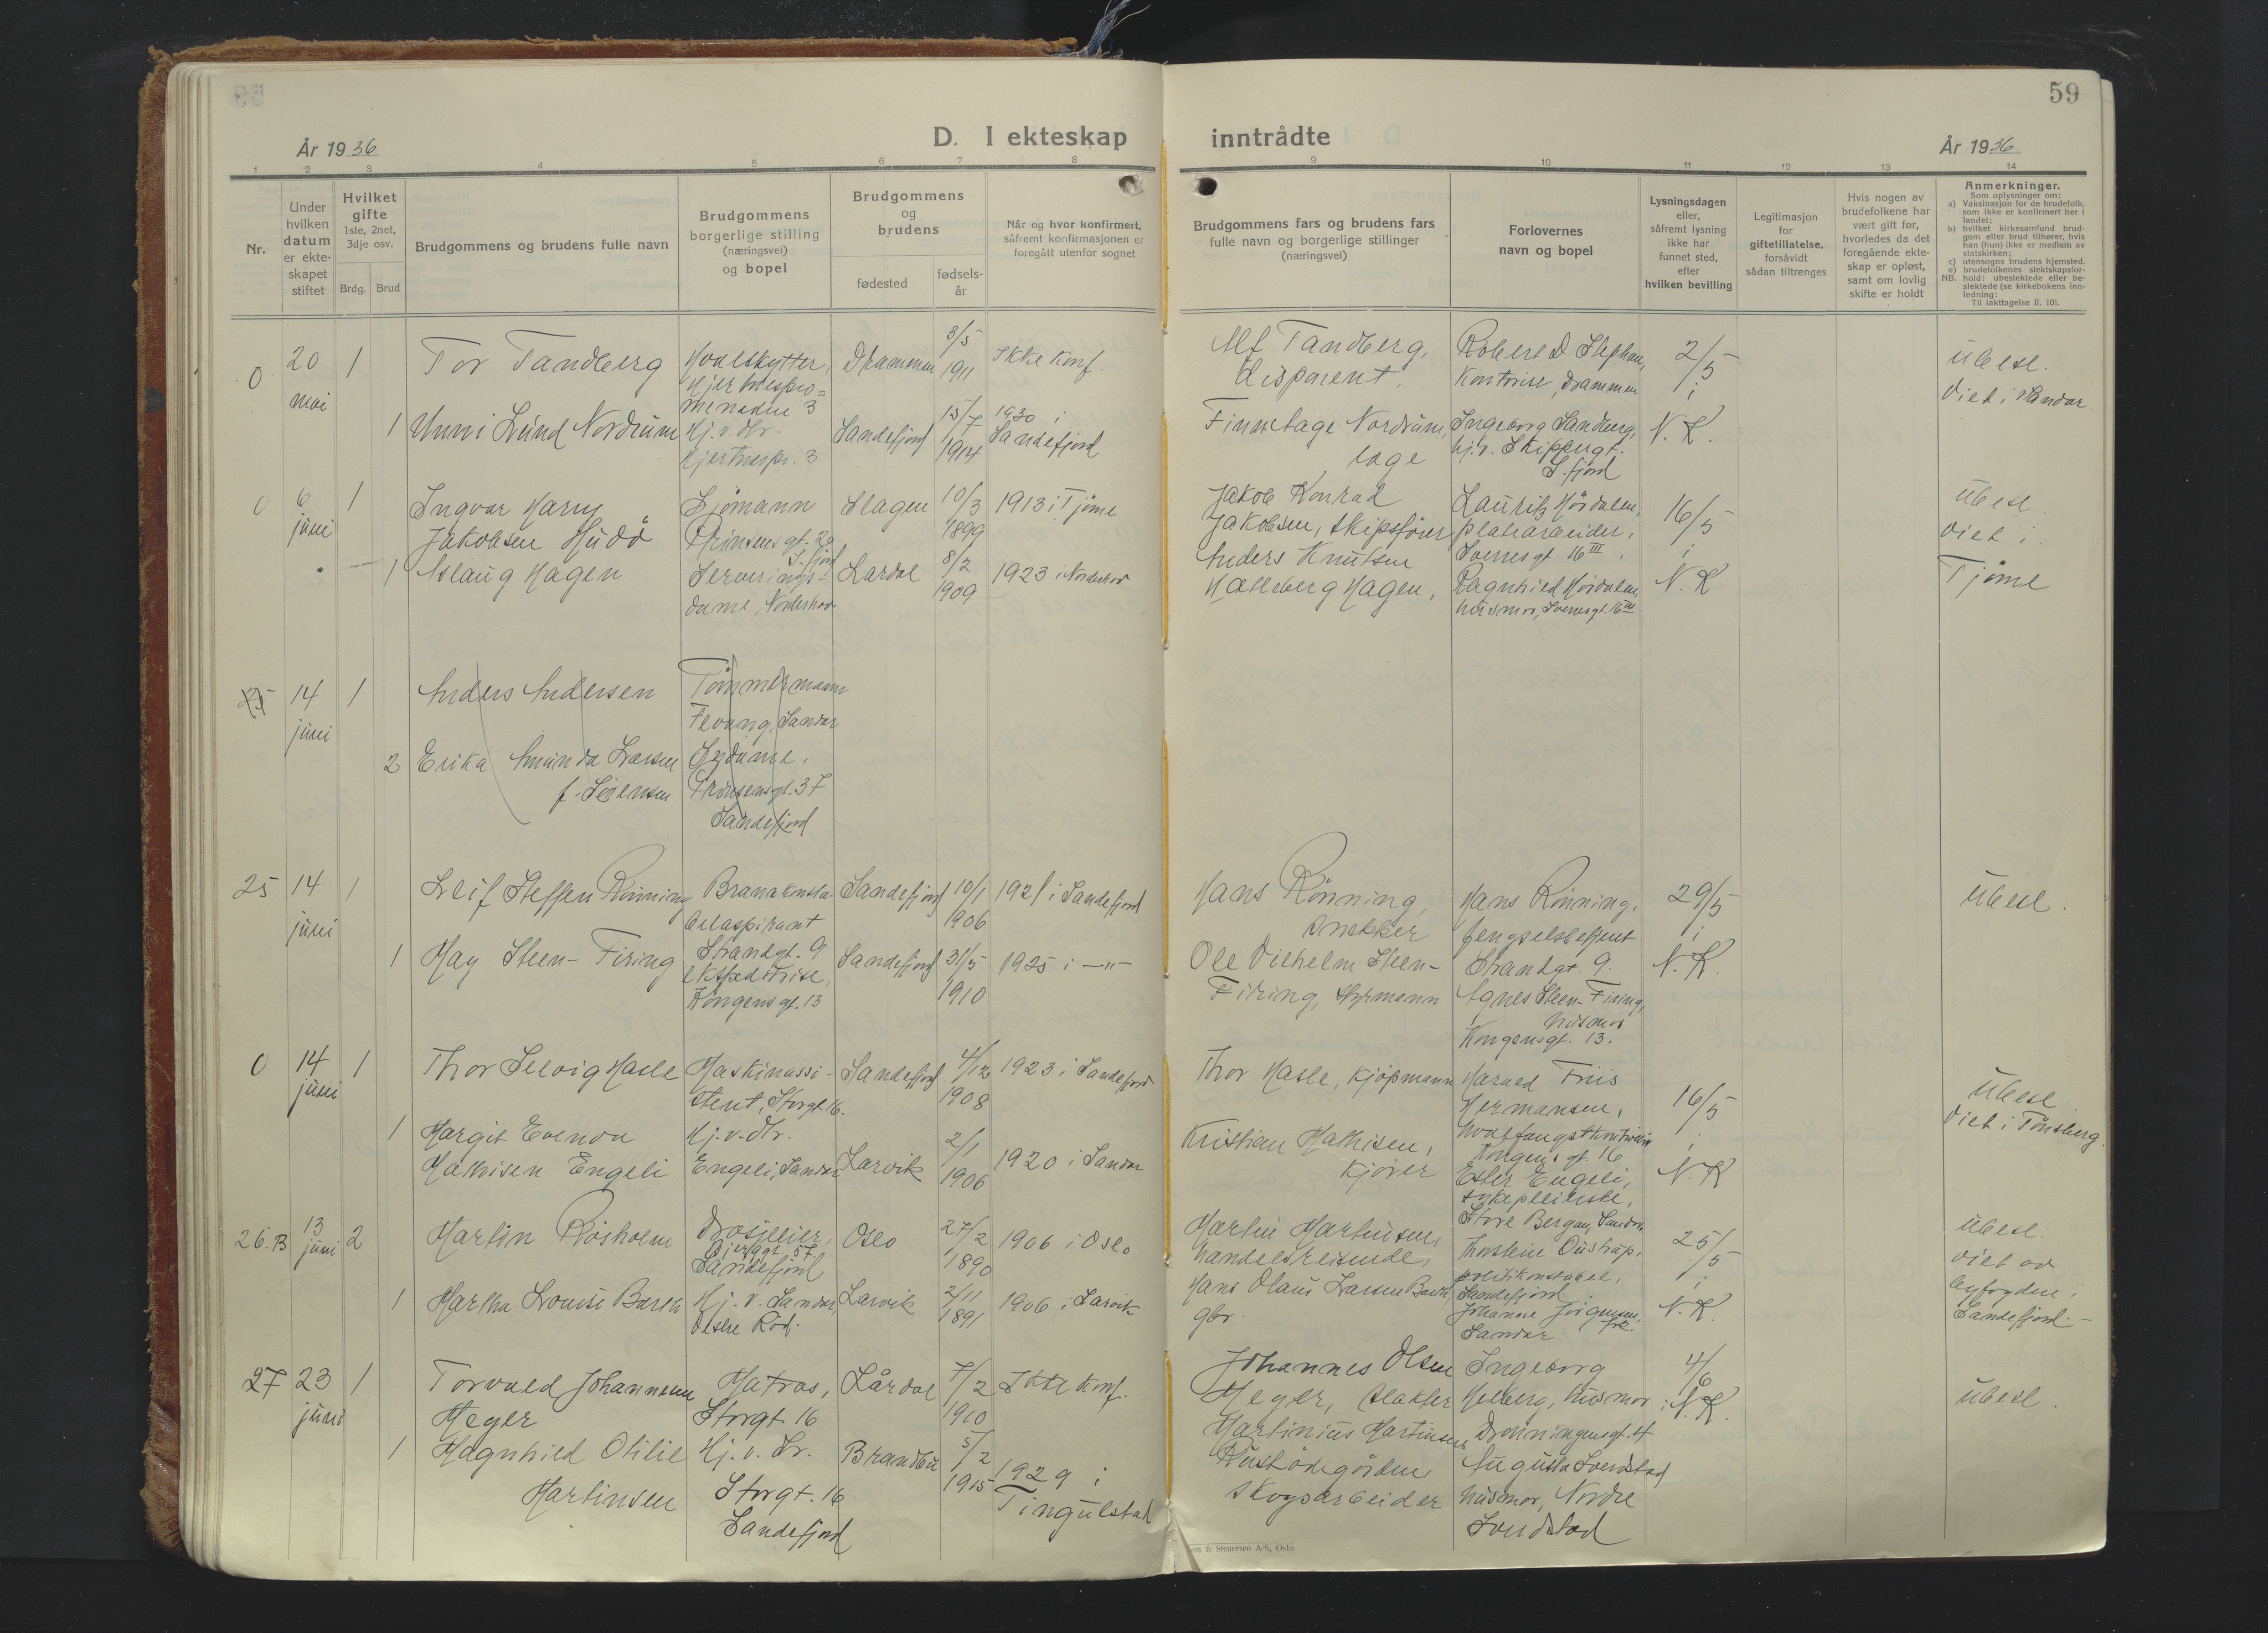 59
År 1936
D. I ekteskap inntrådte
År 1936
1 2 3 4 5 6 7 8 9 10 11 12 13 14
Nr.
Under
hvilken
datum
er ekte-
skapet
stiftet
Hvilket
gifte
1ste, 2net,
3dje osv.
Brdg. Brud
Brudgommens og brudens fulle navn
Brudgommens
borgerlige stilling
(næringsvei)
og bopel
Brudgommens
og
brudens
fødested
fødsels-
år
Når og hvor konfirmert,
såfremt konfirmasjonen er
foregått utenfor sognet
Brudgommens fars og brudens fars
fulle navn og borgerlige stillinger
(næringsvei)
Forlovernes
navn og bopel
Lysningsdagen
eller,
såfremt lysning
ikke har
funnet sted,
efter
hvilken bevilling
Legitimasjon
for
giftetillatelse,
forsåvidt
sådan tiltrenges
Hvis nogen av
brudefolkene har
vært gift før,
hvorledes da det
foregående ekte-
skap er opløst,
samt om lovlig
skifte er holdt
Anmerkninger.
Som oplysninger om:
a) Vaksinasjon for de brudefolk,
som ikke er konfirmert her i
landet;
b) hvilket kirkesamfund brud-
gom eller brud tilhører, hvis
han (hun) ikke er medlem av
statskirken;
c) utensogns brudens hjemsted.
d) brudefolkenes slektskapsfor-
NB. hold: ubeslektede eller be-
slektede (se kirkebokens inn-
ledning:
Til iakttagelse II. 10).
0
20
mai
1
Tor Tandberg
Hvalskytter,
Hjertnespro=
menaden 3
Drammen
3/5
1911
Ikke konf.
Alf Tandberg,
disponent.
Robert D. Stephan,
Kontorist, Drammen
2/5
i
N. K.
ubesl.
Viet i Sandar
1
Unni Lund Nordrum
Hj. v. Mr.
Hjertnespr. 3
Sandefjord
15/7
1914
1930 i
Sandefjord
Finn Aage Nordrum,
læge
Ingeborg Sandberg,
hj. v. Skippergt.
S. fjord
0
6
juni
1
Ingvar Harry
Jakobsen Hudø
Sjømann
Prinsens gt. 20
S. fjord
Slagen
10/3
1899
1913 i Tjøme
Jakob Konrad
Jakobsen, skipsfører
Lauritz Hørdalen,
platearbeider,
Sverresgt. 16 III.
16/5
i
N. K
ubesl.
viet i
Tjøme
1
Aslaug Hagen
Serverings-
dame, Norderhov
Lardal
8/2
1909
1923 i Norderhov
Anders Knutsen
Hælleberg Hagen,
Ragnhild Hørdalen,
husmor, Sverresgt. 16 III
25
14
juni
1
Anders Andersen
Tømmermann
Fevang, Sandar
2
Erika Amanda Larsen
f. Sørensen
Sydame.
Prinsensgt. 37
Sandefjord
25
14
juni
1
Leif Steffen Rønning
Brannkonsta-
belaspirant
Strandgt. 9
Sandefjord
10/1
1906
1921 i Sandefjord
Hans Rønning,
snekker
Hans Rønning,
fengselsbetjent
Strandgt. 9.
29/5
i
N. K.
ubesl.
1
May Steen-Firing
ekspeditrise,
Kongens gt. 13
Sandefjord
31/5
1910
1925 i —"—
Ole Vilhelm Steen-
Firing, styrmann
Agnes Steen-Firing,
husmor
Kongensgt. 13.
0
14
juni
1
Thor Selvig Hasle
Maskinassi-
stent, Storgt. 16.
Sandefjord
4/12
1908
1923 i Sandefjord
Thor Hasle, kjøpmann
Harald Friis
Hermansen,
Hvalfangstkontrollør
Kongens gt. 16
16/5
i
N. K
ubesl
viet i Tønsberg.
1
Margit Evenda
Mathisen Engeli
Hj. v. Mr.
Engeli, Sandar
Larvik
2/1
1906
1920 i Sandar
Kristian Mathisen,
kjører
Ester Engeli,
sykepleierske,
Store Bergan, Sandar
26. B
13
juni
2
Martin Rosholm
Drosjeeier,
Bjerggt. 57
Sandefjord
Oslo
27/2
1890
1906 i Oslo
Martin Martinsen,
handelsreisende,
Thorstein Oustrup,
politikonstabel,
Sandefjord
25/5
i
N. K.
ubesl.
viet av
byfogden i
Sandefjord.-
1
Martha Lovise Barth
Hj. v. Sandar,
Vestre Rød.
Larvik
2/11
1891
1906 i Larvik
Hans Olaus Larsen Barth,
gbr.
Johanne Jørgensen,
frk.
Sandar
27
23
juni
1
Torvald Johannessen
Meyer
Matros,
Storgt. 16
Lårdal
7/2
1910
Ikke konf.
Johannes Olsen
Meyer, slakter
Ingeborg
Melberg, husmor
Dronningensgt. 4
4/6
i N. K.
ubesl.
1
Magnhild Otilie
Martinsen
Hj. v. Sr.
Storgt. 16
Sandefjord
Brandbu
5/2
1915
1929 i
Tingulstad
Martinius Martinsen
Rustødegården
skogsarbeider
Augusta Svendstad
husmor, Nordre
Svendstad
& Stenersen A/S, Oslo